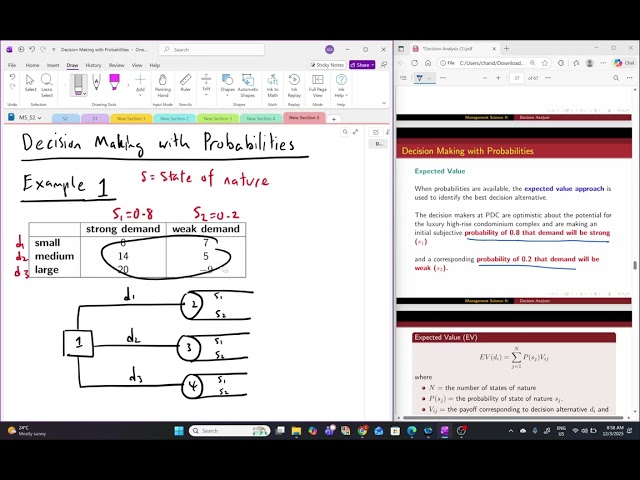 Decision Making with Probabilities - One...
Search
File Home Insert Draw History Review View Help
Sticky Notes Share
Undo Lasso Select Eraser Drawing Tools Painting Hand Ruler Shapes Automatic Shapes Ink to Math Ink to Text Replay Full Page View
MS_S2 S2 S1 New Section 1 New Section 2 New Section 3 New Section 4 New Section 5
Decision Making with Probabilities
Example 1 S = State of nature
S1=0.8 S2=0.2
strong demand weak demand
d1 small 8 7
d2 medium 14 5
d3 large 20 -9
1
d1 2 S1 S2
d2 3 S1 S2
d3 4 S1 S2
*Decision Analysis (1).pdf
File C:/Users/chand/Download...
37 of 67
Management Science II: Decision Analysis
Decision Making with Probabilities
Expected Value
When probabilities are available, the expected value approach is
used to identify the best decision alternative.
The decision makers at PDC are optimistic about the potential for
the luxury high-rise condominium complex and are making an
initial subjective probability of 0.8 that demand will be strong
(s1)
and a corresponding probability of 0.2 that demand will be
weak (s2).
Management Science II: Decision Analysis
Expected Value (EV)
EV(di) = ∑ P(sj)Vij
N
j=1
where
• N = the number of states of nature
• P(sj) = the probability of state of nature sj.
• Vij = the payoff corresponding to decision alternative di and
24°C
Mostly sunny
Search
ENG
US
8:58 AM
12/3/2025